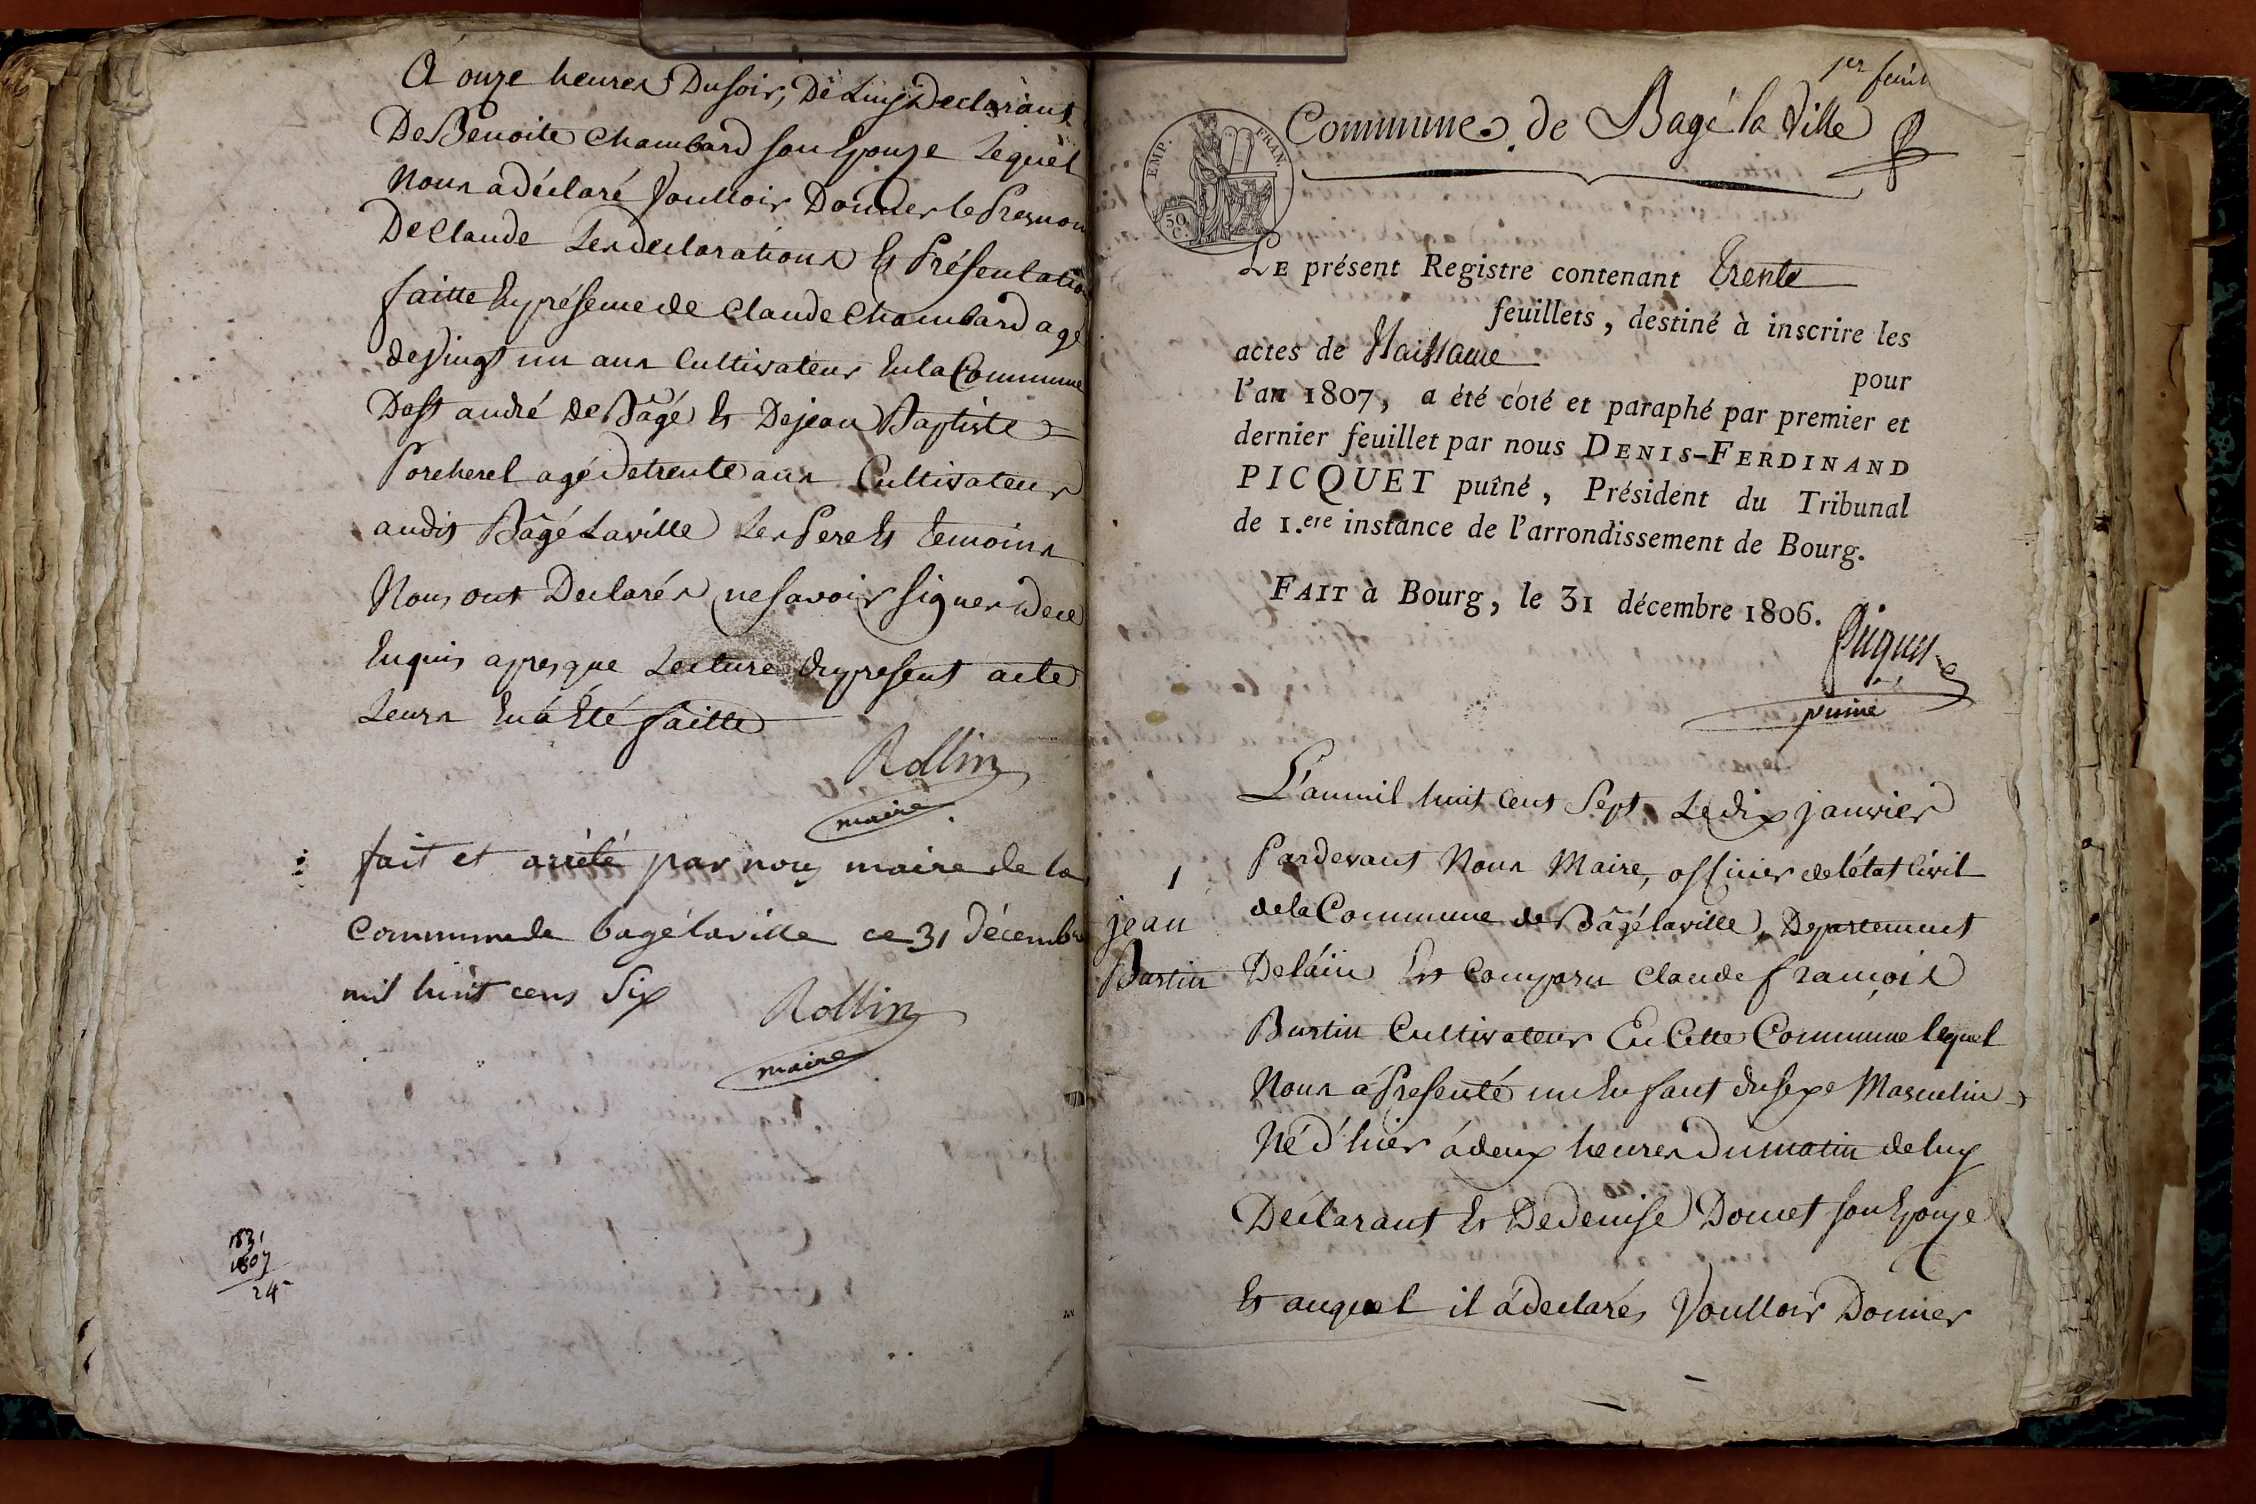 A onze heures Dusoir, De Luy Declarant
De Benoite Chambard son Epouze Lequel
Nous a déclaré Voulloir Donner le Prenom
De Claude Les declarations Et Présentation
faitte En présence de Claude Chambard agé
de Vingt un ans Cultivateur En la Commune
De St andré de Bâgé Et De jean Baptiste =
Porcherel agé de trente ans Cultivateur
audit Bâgé Laville Les Pere Et temoins
Nous ont Declarés ne savoir signer de ce
Enquis apres que Lecture du present acte
Leurs En á Eté faitte
Rollin
maire
fait et arrêté par nous maire de la
Commune de bagé laville ce 31 décembre
mil huit cens Six
Rollin
maire
1831
1807
24
1er feuil
Commune de Bagé la Ville
EMP. FRAN.
50 C.
LE présent Registre contenant trente
feuillets, destiné à inscrire les
actes de Naissance pour
l'an 1807, a été coté et paraphé par premier et
dernier feuillet par nous DENIS-FERDINAND
PICQUET puîné, Président du Tribunal
de 1.ere instance de l'arrondissement de Bourg.
FAIT à Bourg, le 31 décembre 1806.
Picquet
puiné
L'an mil huit cent Sept Le dix janvier
1
Pardevant Nous Maire, officier de l'état Civil
de la Commune de Bâgé laville, Departement
jean
Bustin
De l'ain Est Comparu Claude françois
Bustin Cultivateur En Cette Commune lequel
Nous á Presenté un Enfant du sexe Masculin
Né d'hier á deux heures du matin de luy
Déclarant Et De denise Donnet son Epouze
Et auquel il á declarés Voulloir Donner